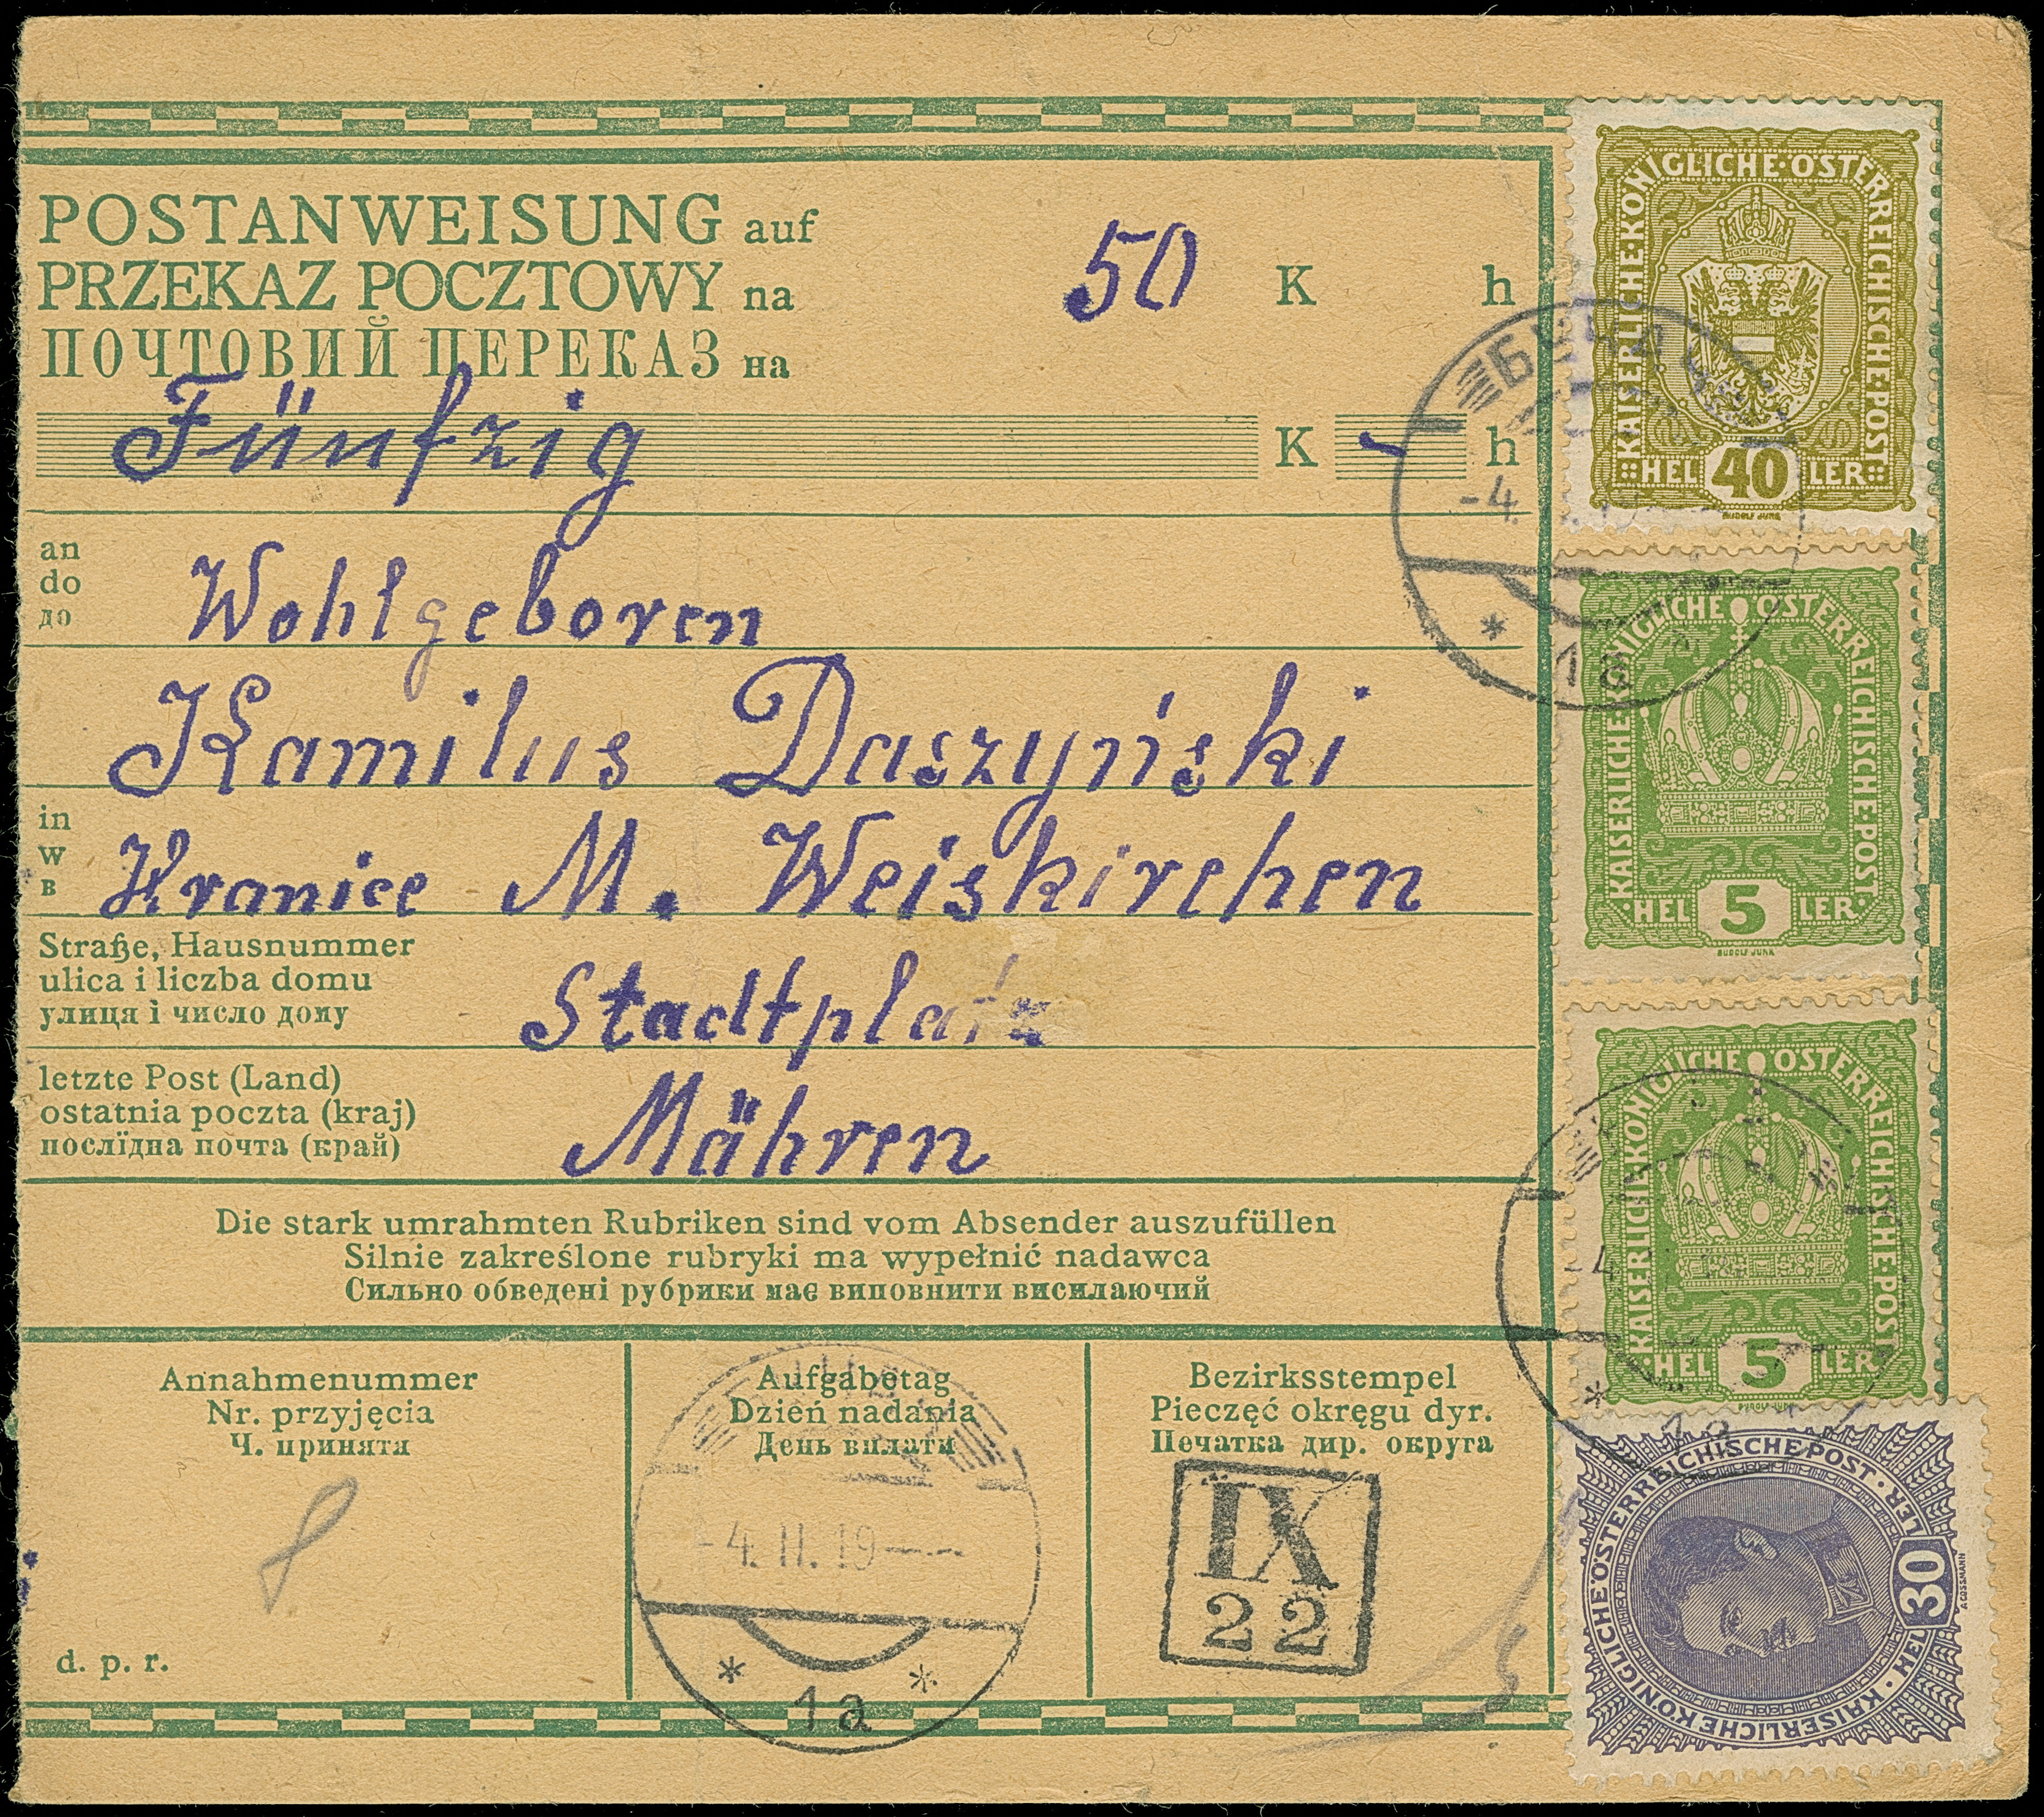 POSTANWEISUNG auf
PRZEKAZ POCZTOWY na
ПОЧТОВИЙ ПЕРЕКАЗ на
50 K h
Fünfzig K - h
an
do
до
Wohlgeboren
Kamilus Daszyński
in
w
в
Hranice M. Weiskirchen
Straße, Hausnummer
ulica i liczba domu
улиця і число дому
Stadtplatz
letzte Post (Land)
ostatnia poczta (kraj)
послїдна почта (край)
Mähren
Die stark umrahmten Rubriken sind vom Absender auszufüllen
Silnie zakreślone rubryki ma wypełnić nadawca
Сильно обведені рубрики має виповнити висилаючий
Annahmenummer
Nr. przyjęcia
Ч. принятя
8
d. p. r.
Aufgabetag
Dzień nadania
День вплати
-4. II. 19
* *
1a
Bezirksstempel
Pieczęć okręgu dyr.
Печатка дир. округа
IX
22
KAISERLICHE·KÖNIGLICHE·ÖSTERREICHISCHE·POST
HEL 40 LER
RUDOLF JUNK
-4.
*
1a
KAISERLICHE·KÖNIGLICHE ÖSTERREICHISCHE·POST
HEL 5 LER
RUDOLF JUNK
KAISERLICHE·KÖNIGLICHE ÖSTERREICHISCHE·POST
HEL 5 LER
RUDOLF JUNK
-4
*
1a
KAISERLICHE KÖNIGLICHE ÖSTERREICHISCHE POST
HEL 30 LER
A. COSSMANN